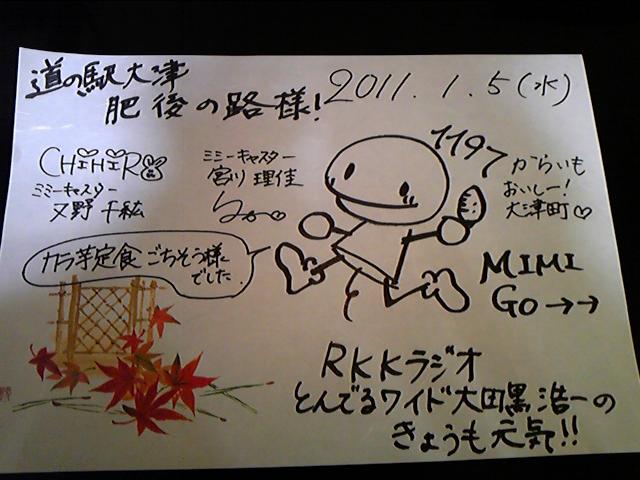 道の駅大津
肥後の路様!
2011.1.5(水)
CHIHIRO
ミミーキャスター
又野 千紘
ミミーキャスター
宮川 理佳
1197
からいも
おいしー!
大津町♡
カラ芋定食 ごちそう様
でした
MIMI
Go→→
RKKラジオ
とんでるワイド 大田黒 浩一の
きょうも元気!!